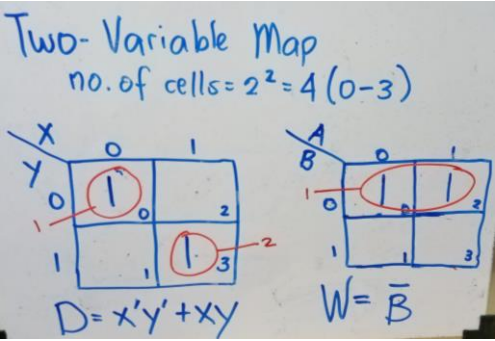 Two-Variable Map
no. of cells = 2² = 4 (0-3)
X
Y
0 1
0 1 0 2
1
1 1 1 3 2
D = x'y' + xy
A
B
0 1
1
0 1 0 1 2
1 1 3
W = B̅